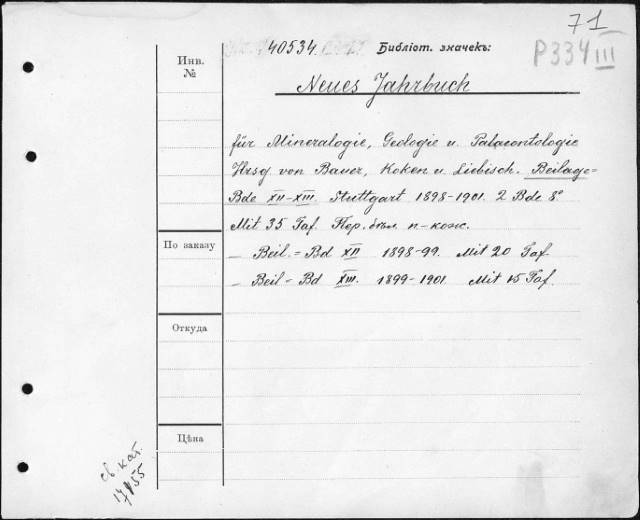 71
40534. Библіот. значекъ:
P334 III
Инв. №
Neues Jahrbuch
für Mineralogie, Geologie u. Palaeontologie
Hrsg von Bauer, Koken u. Liebisch. Beilage=
Bde XII-XIII. Stuttgart 1898-1901. 2 Bde 8°
Mit 35 Taf. Пер. бѣл. п.-кож.
По заказу
— Beil.=Bd XII 1898-99. Mit 20 Taf.
— Beil=Bd XIII. 1899-1901. Mit 15 Taf.
Откуда
Цѣна
св. кат.